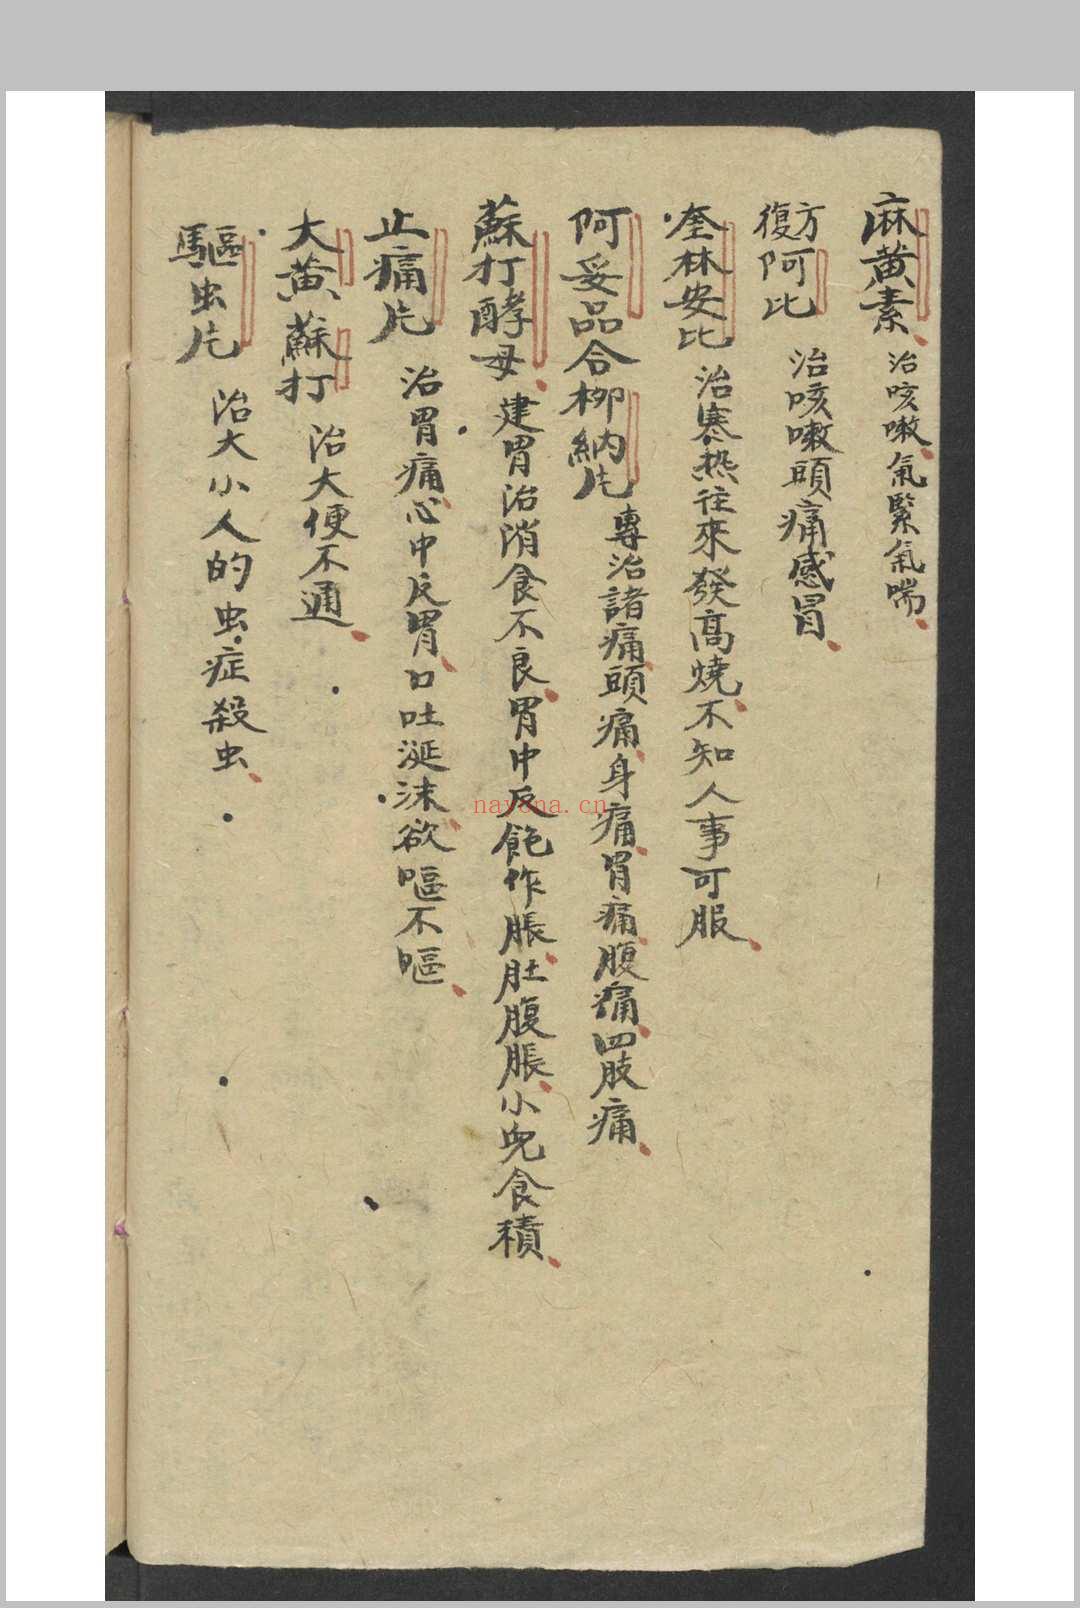 麻黄素 治咳嗽氣緊氣喘
復方阿比 治咳嗽頭痛感冒
奎林安比 治寒热往來發髙燒不知人事可服
阿妥品合柳納片 專治諸痛頭痛身痛胃痛腹痛四肢痛
蘇打酵母 建胃治消食不良胃中反飽作脹肚腹脹小兒食積
止痛片 治胃痛心中反胃口吐涎沫欲嘔不嘔
大黄蘇打 治大便不通
驅虫片 治大小人的虫症殺虫
nayona.cn